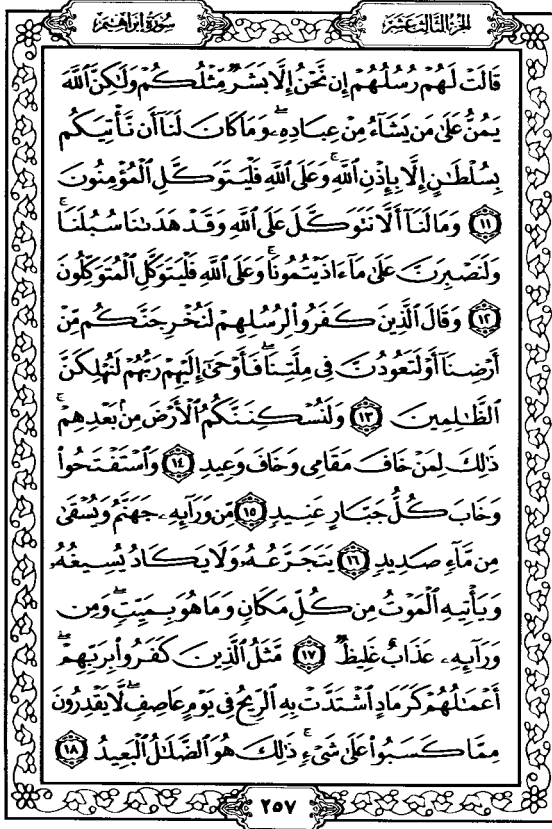 الجزء الثالث عشر
سورة إبراهيم
قَالَتْ لَهُمْ رُسُلُهُمْ إِن نَّحْنُ إِلَّا بَشَرٌ مِّثْلُكُمْ وَلَٰكِنَّ ٱللَّهَ
يَمُنُّ عَلَىٰ مَن يَشَآءُ مِنْ عِبَادِهِۦ ۖ وَمَا كَانَ لَنَآ أَن نَّأْتِيَكُم
بِسُلْطَٰنٍ إِلَّا بِإِذْنِ ٱللَّهِ ۚ وَعَلَى ٱللَّهِ فَلْيَتَوَكَّلِ ٱلْمُؤْمِنُونَ
۝١١ وَمَا لَنَآ أَلَّا نَتَوَكَّلَ عَلَى ٱللَّهِ وَقَدْ هَدَىٰنَا سُبُلَنَا ۚ
وَلَنَصْبِرَنَّ عَلَىٰ مَآ ءَاذَيْتُمُونَا ۚ وَعَلَى ٱللَّهِ فَلْيَتَوَكَّلِ ٱلْمُتَوَكِّلُونَ
۝١٢ وَقَالَ ٱلَّذِينَ كَفَرُوا۟ لِرُسُلِهِمْ لَنُخْرِجَنَّكُم مِّنْ
أَرْضِنَآ أَوْ لَتَعُودُنَّ فِى مِلَّتِنَا ۖ فَأَوْحَىٰٓ إِلَيْهِمْ رَبُّهُمْ لَنُهْلِكَنَّ
ٱلظَّٰلِمِينَ ۝١٣ وَلَنُسْكِنَنَّكُمُ ٱلْأَرْضَ مِنۢ بَعْدِهِمْ ۚ
ذَٰلِكَ لِمَنْ خَافَ مَقَامِى وَخَافَ وَعِيدِ ۝١٤ وَٱسْتَفْتَحُوا۟
وَخَابَ كُلُّ جَبَّارٍ عَنِيدٍ ۝١٥ مِّن وَرَآئِهِۦ جَهَنَّمُ وَيُسْقَىٰ
مِن مَّآءٍ صَدِيدٍ ۝١٦ يَتَجَرَّعُهُۥ وَلَا يَكَادُ يُسِيغُهُۥ
وَيَأْتِيهِ ٱلْمَوْتُ مِن كُلِّ مَكَانٍ وَمَا هُوَ بِمَيِّتٍ ۖ وَمِن
وَرَآئِهِۦ عَذَابٌ غَلِيظٌ ۝١٧ مَّثَلُ ٱلَّذِينَ كَفَرُوا۟ بِرَبِّهِمْ ۖ
أَعْمَٰلُهُمْ كَرَمَادٍ ٱشْتَدَّتْ بِهِ ٱلرِّيحُ فِى يَوْمٍ عَاصِفٍ ۖ لَّا يَقْدِرُونَ
مِمَّا كَسَبُوا۟ عَلَىٰ شَىْءٍ ۚ ذَٰلِكَ هُوَ ٱلضَّلَٰلُ ٱلْبَعِيدُ ۝١٨
٢٥٧